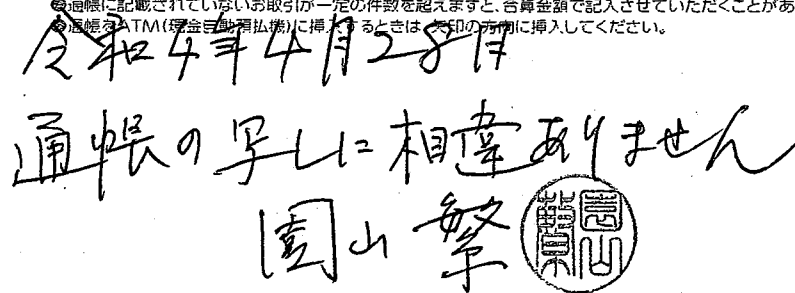 ❷通帳に記載されていないお取引が一定の件数を超えますと、合算金額で記入させていただくことがあ
❸通帳をATM(現金自動預払機)に挿入するときは、矢印の方向に挿入してください。
令和4年4月28日
通帳の写しに相違ありません
園山 繁
園山繁